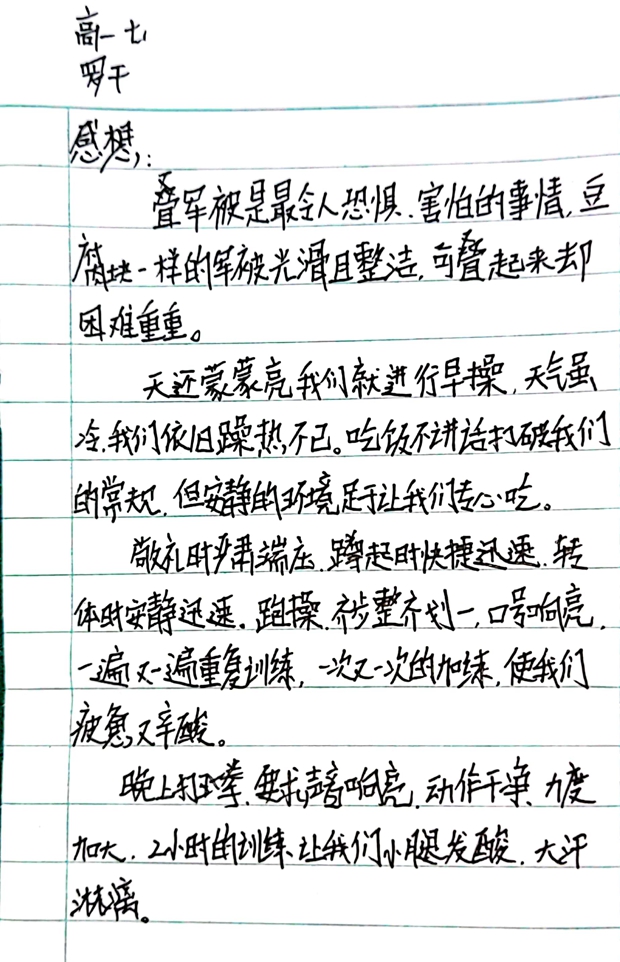 高一七
罗干
感想:
叠军被是最令人恐惧、害怕的事情,豆
腐块一样的军被光滑且整洁,可叠起来却
困难重重。
天还蒙蒙亮我们就进行早操,天气虽
冷,我们依旧躁热不已。吃饭不讲话打破我们
的常规,但安静的环境足于让我们专心吃。
敬礼时严肃端庄,蹲起时快捷迅速,转
体时安静迅速。跑操,齐步整齐划一,口号响亮,
一遍又一遍重复训练,一次又一次的加练,使我们
疲惫又辛酸。
晚上打拳,要求声音响亮,动作干净、力度
加大,2小时的训练、让我们小腿发酸,大汗
淋漓。